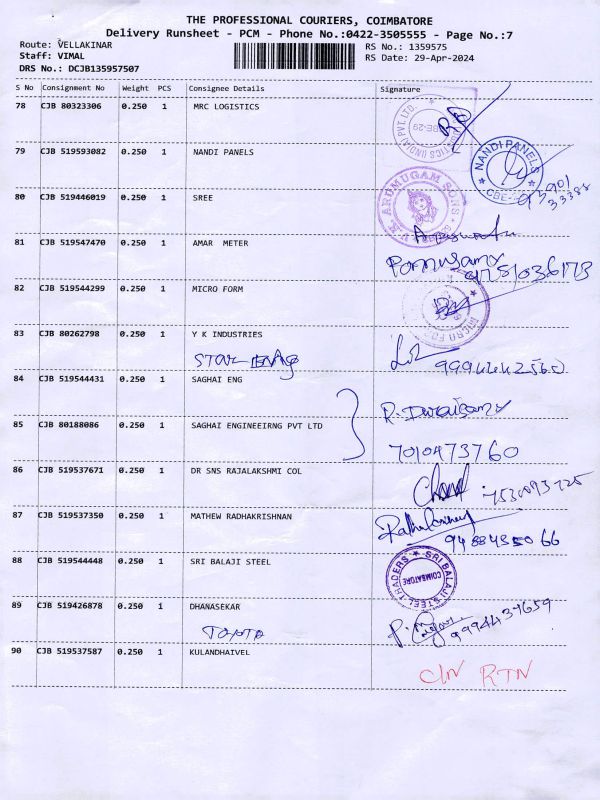 THE PROFESSIONAL COURIERS, COIMBATORE
Delivery Runsheet - PCM - Phone No.:0422-3505555 - Page No.:7
Route: VELLAKINAR
RS No.: 1359575
Staff: VIMAL
RS Date: 29-Apr-2024
DRS No.: DCJB135957507
S No Consignment No Weight PCS Consignee Details Signature
78 CJB 80323306 0.250 1 MRC LOGISTICS
79 CJB 519593082 0.250 1 NANDI PANELS
NANDI PANELS
80 CJB 519446019 0.250 1 SREE
ARUMUGAM SONS
93901
33388
81 CJB 519547470 0.250 1 AMAR METER
Ponnusamy
9751036173
82 CJB 519544299 0.250 1 MICRO FORM
83 CJB 80262798 0.250 1 Y K INDUSTRIES
STAR ENGG
9994442560
84 CJB 519544431 0.250 1 SAGHAI ENG
R. Duraisamy
85 CJB 80188086 0.250 1 SAGHAI ENGINEEIRNG PVT LTD
7010473760
86 CJB 519537671 0.250 1 DR SNS RAJALAKSHMI COL
87 CJB 519537350 0.250 1 MATHEW RADHAKRISHNAN
88 CJB 519544448 0.250 1 SRI BALAJI STEEL
SRI BALAJI STEEL TRADERS
COIMBATORE
89 CJB 519426878 0.250 1 DHANASEKAR
TOYOTA
9994437659
90 CJB 519537587 0.250 1 KULANDHAIVEL
C/N RTN